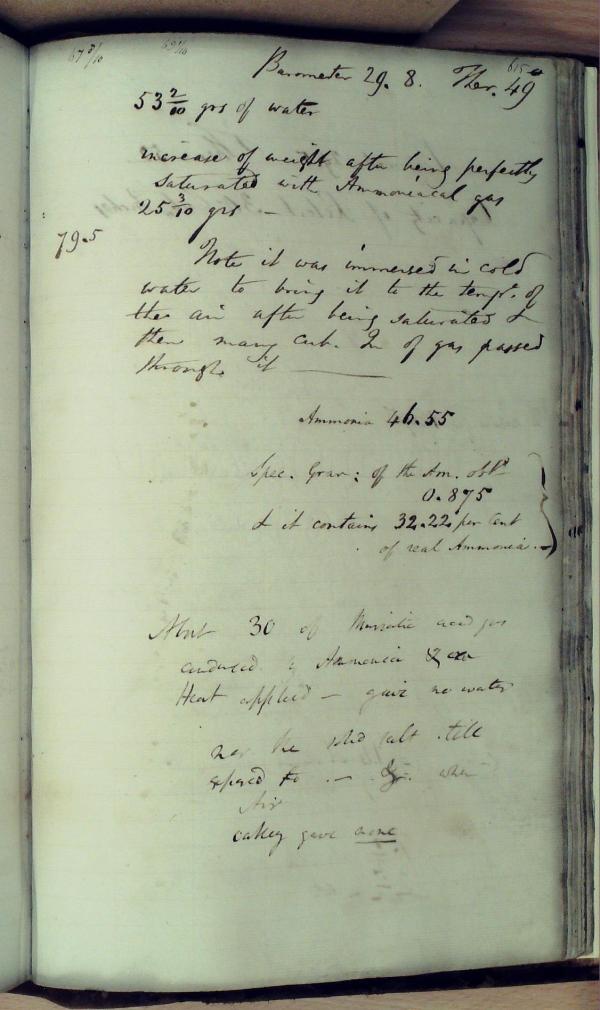 67 3/10 69 1/10
Barometer 29. 8. Ther. 49
53 2/10 grs of water
increase of weight after being perfectly
saturated with Ammoniacal gas
25 3/10 grs —
79.5
Note it was immersed in cold
water to bring it to the tempr. of
the air after being saturated &
then many cub. In of gas passed
through it ———
Ammonia 46.55
Spec. Grav: of the Am. obtd
0.875
& it contains 32.22 per Cent
of real Ammonia. —
About 30 of Muriatic acid gas
condensed by Ammonia &
Heat applied — gave no water
nor the solid salt till
exposed to . — when
Air
gave none